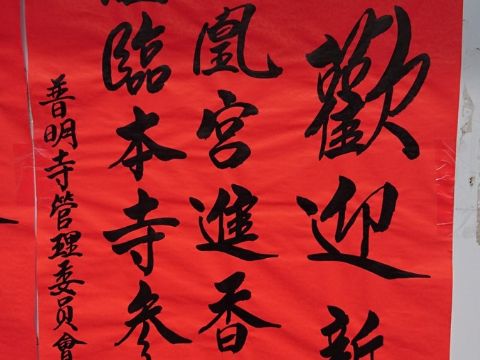 歡迎新
凰宮進香
臨本寺參
普明寺管理委員會